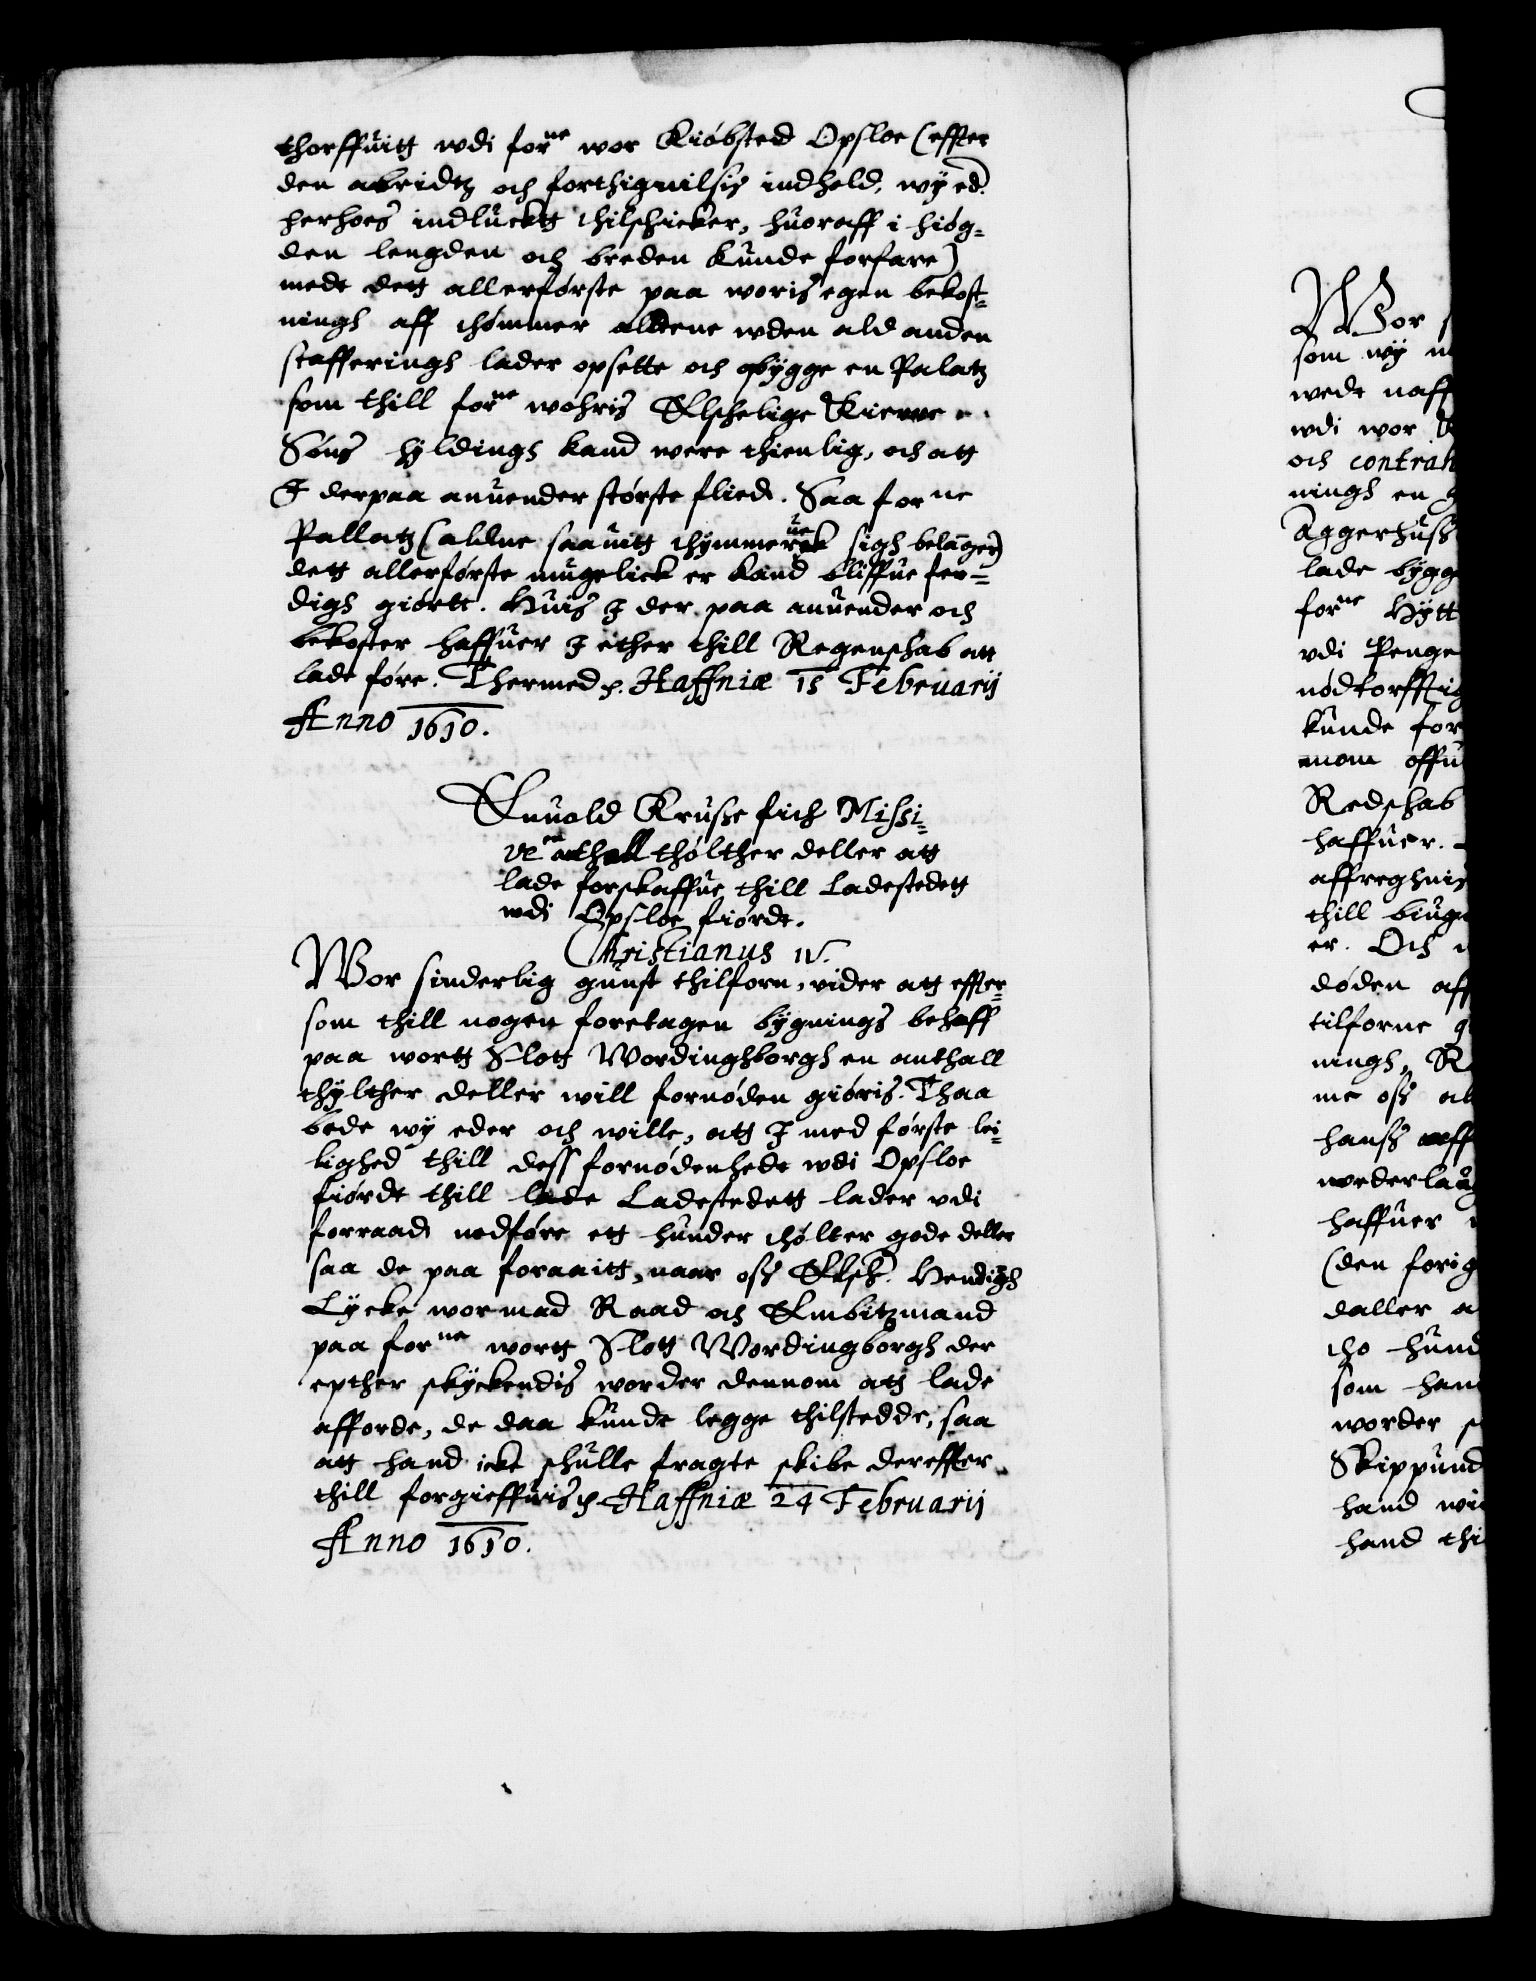 thorffuitg wdi forne wor Kiøbsted Opsloe (effter
den abridtz och forthignilsis indhold, wy ed.
herhoes indlucktt thilschicker, huoraff i høg-
den lengden och breden kunde forfare)
medt dett allerførste paa woris egen bekost-
ningh aff thømmer alldene wden ald anden
stafferingh lader opsette och bygge en Palatz
som thill forne wohris Elschelige Kierre
Søns hyldingh kand were thienlig, och att
I derpaa anuender største flied. Saa forne
Pallatz (aldne saauitt thymmeruerck sigh belanger)
dett allerførste mugelick er kand bliffue fer-
digh giørtt. Huis I der paa anuender och
bekoster haffuer I ether thill Regenschab att
lade føre. Thermed p. Haffniæ 15 Februarij
Anno 1610.
Enuold Kruse fich Missi-
ve en athall thølther deller att
lade forskaffue thill Ladestedett
wdi Opsloe fiørdt.
Christianus IV.
Wor sinderlig gunst thilforn, vider att effter-
som thill nogen foretagen bygnings behoff
paa wortt Slott Wordinghborgh en anthall
thylther deller will fornøden giøris. Thaa
bede wy eder och wille, att I med første lei-
lighed thill dess fornødenhedt wdi Opsloe
fiørdt thill lade Ladestedett lader vdi
forraad nedføre ett hunder thølter gode deller
saa de paa foraaitt, naar oss Elsch. Hendrigh
Lycke wor mad Raad och Embitzmand
paa forne wortt Slott Wordingborgh der
epther skyckendis worder dennom att lade
afforde, de daa kunde legge thilstedde, saa
att hand icke schulle fragte skibe dereffter
thill forgieffuis p. Haffniæ 24 Februarij
Anno 1610.
Wor
som wy
wedt
wdi wor
och contrah
ningh en
Aggerhuss
lade bygge
forne Hytt
vdi Penge
nødtorfftig
kunde for
Redschab
haffuer.
thill
er. Och
døden aff
tilforne
ningh,
me oss
hanss
haffuer
(den forig
daller
tho hund
som hand
worder
Skippund
hand
hand thi